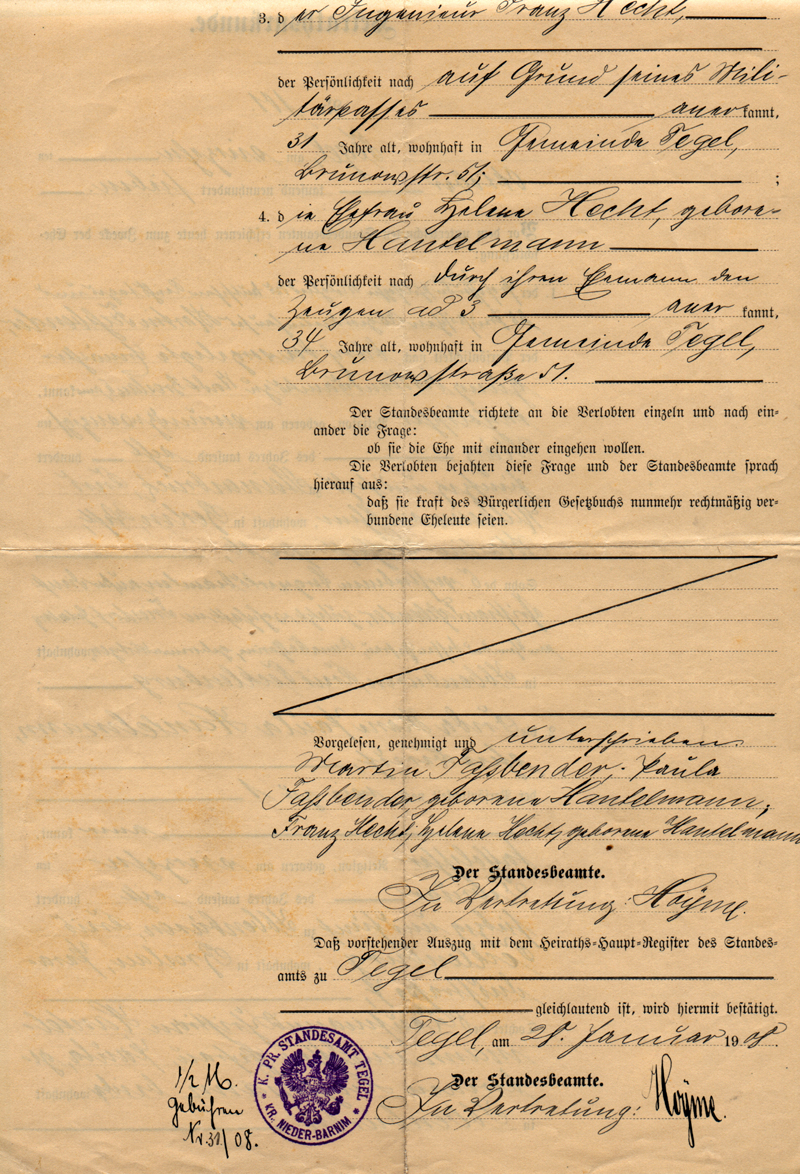 3. der Ingenieur Franz Hecht,
der Persönlichkeit nach auf Grund seines Mili-
tärpasses anerkannt,
31 Jahre alt, wohnhaft in Gemeinde Tegel,
Brunowstr. 51; ;
4. die Ehefrau Helene Hecht, gebore-
ne Hantelmann
der Persönlichkeit nach durch ihren Ehemann den
Zeugen ad 3 anerkannt,
34 Jahre alt, wohnhaft in Gemeinde Tegel,
Brunowstraße 51.
Der Standesbeamte richtete an die Verlobten einzeln und nach ein-
ander die Frage:
ob sie die Ehe mit einander eingehen wollen.
Die Verlobten bejahten diese Frage und der Standesbeamte sprach
hierauf aus:
daß sie kraft des Bürgerlichen Gesetzbuchs nunmehr rechtmäßig ver-
bundene Eheleute seien.
Vorgelesen, genehmigt und unterschrieben
Martin Faßbender, Paula
Faßbender, geborene Hantelmann,
Franz Hecht, Helene Hecht, geborene Hantelmann
Der Standesbeamte.
In Vertretung: Hoÿme.
Daß vorstehender Auszug mit dem Heiraths-Haupt-Register des Standes-
amts zu Tegel
gleichlautend ist, wird hiermit bestätigt.
Tegel, am 28. Januar 1908.
Der Standesbeamte.
In Vertretung: Hoÿme.
* K. PR. STANDESAMT TEGEL *
KR. NIEDER-BARNIM
1/2 M.
Gebühren
Nr. 31/08.